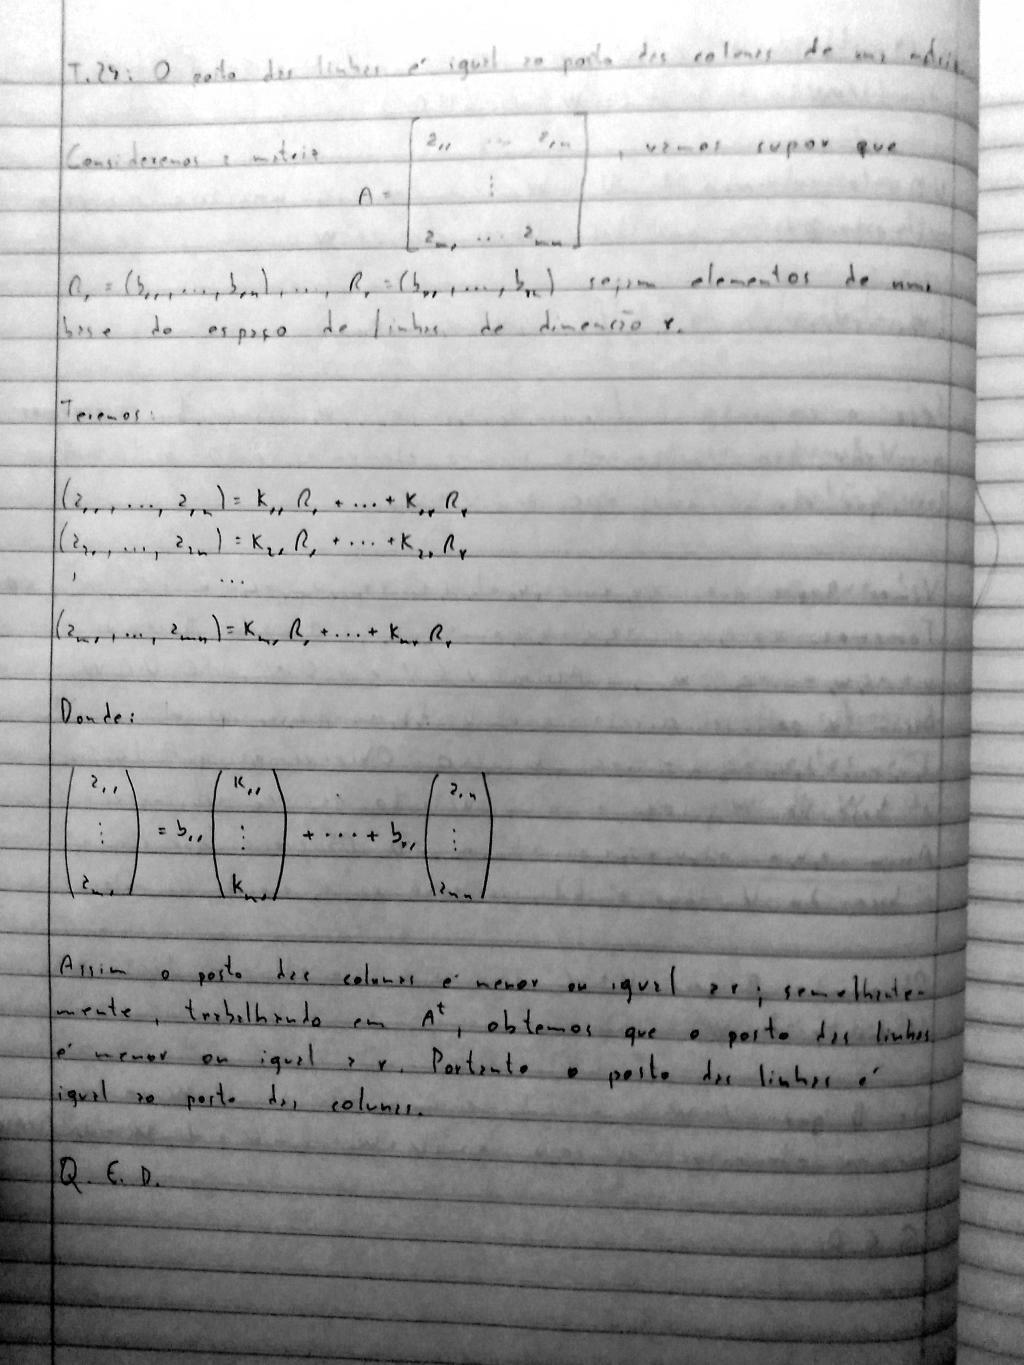 T.24: O posto das linhas é igual ao posto das colunas de uma matriz.
Consideremos a matriz A = [a₁₁ ... a₁ₙ ⋮ aₘ₁ ... aₘₙ], vamos supor que
R₁ = (b₁₁, ..., b₁ₙ), ..., Rᵣ = (bᵣ₁, ..., bᵣₙ) sejam elementos de uma
base do espaço de linhas de dimensão r.
Teremos:
(a₁₁, ..., a₁ₙ) = K₁₁ R₁ + ... + K₁ᵣ Rᵣ
(a₂₁, ..., a₂ₙ) = K₂₁ R₁ + ... + K₂ᵣ Rᵣ
...
(aₘ₁, ..., aₘₙ) = Kₘ₁ R₁ + ... + Kₘᵣ Rᵣ
Donde:
(a₁₁ ⋮ aₘ₁) = b₁₁ (K₁₁ ⋮ Kₘ₁) + ... + bᵣ₁ (a₁ₙ ⋮ aₘₙ)
Assim o posto das colunas é menor ou igual a r; semelhante-
mente, trabalhando em Aᵗ, obtemos que o posto das linhas
é menor ou igual a r. Portanto o posto das linhas é
igual ao posto das colunas.
Q. E. D.